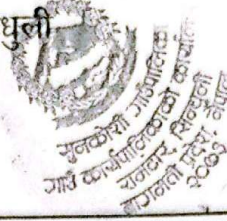 धुली
सुनकोशी गाउँपालिका
गाउँ कार्यपालिकाको कार्यालय
रामटार, सिन्धुली
बागमती प्रदेश, नेपाल
२०७३